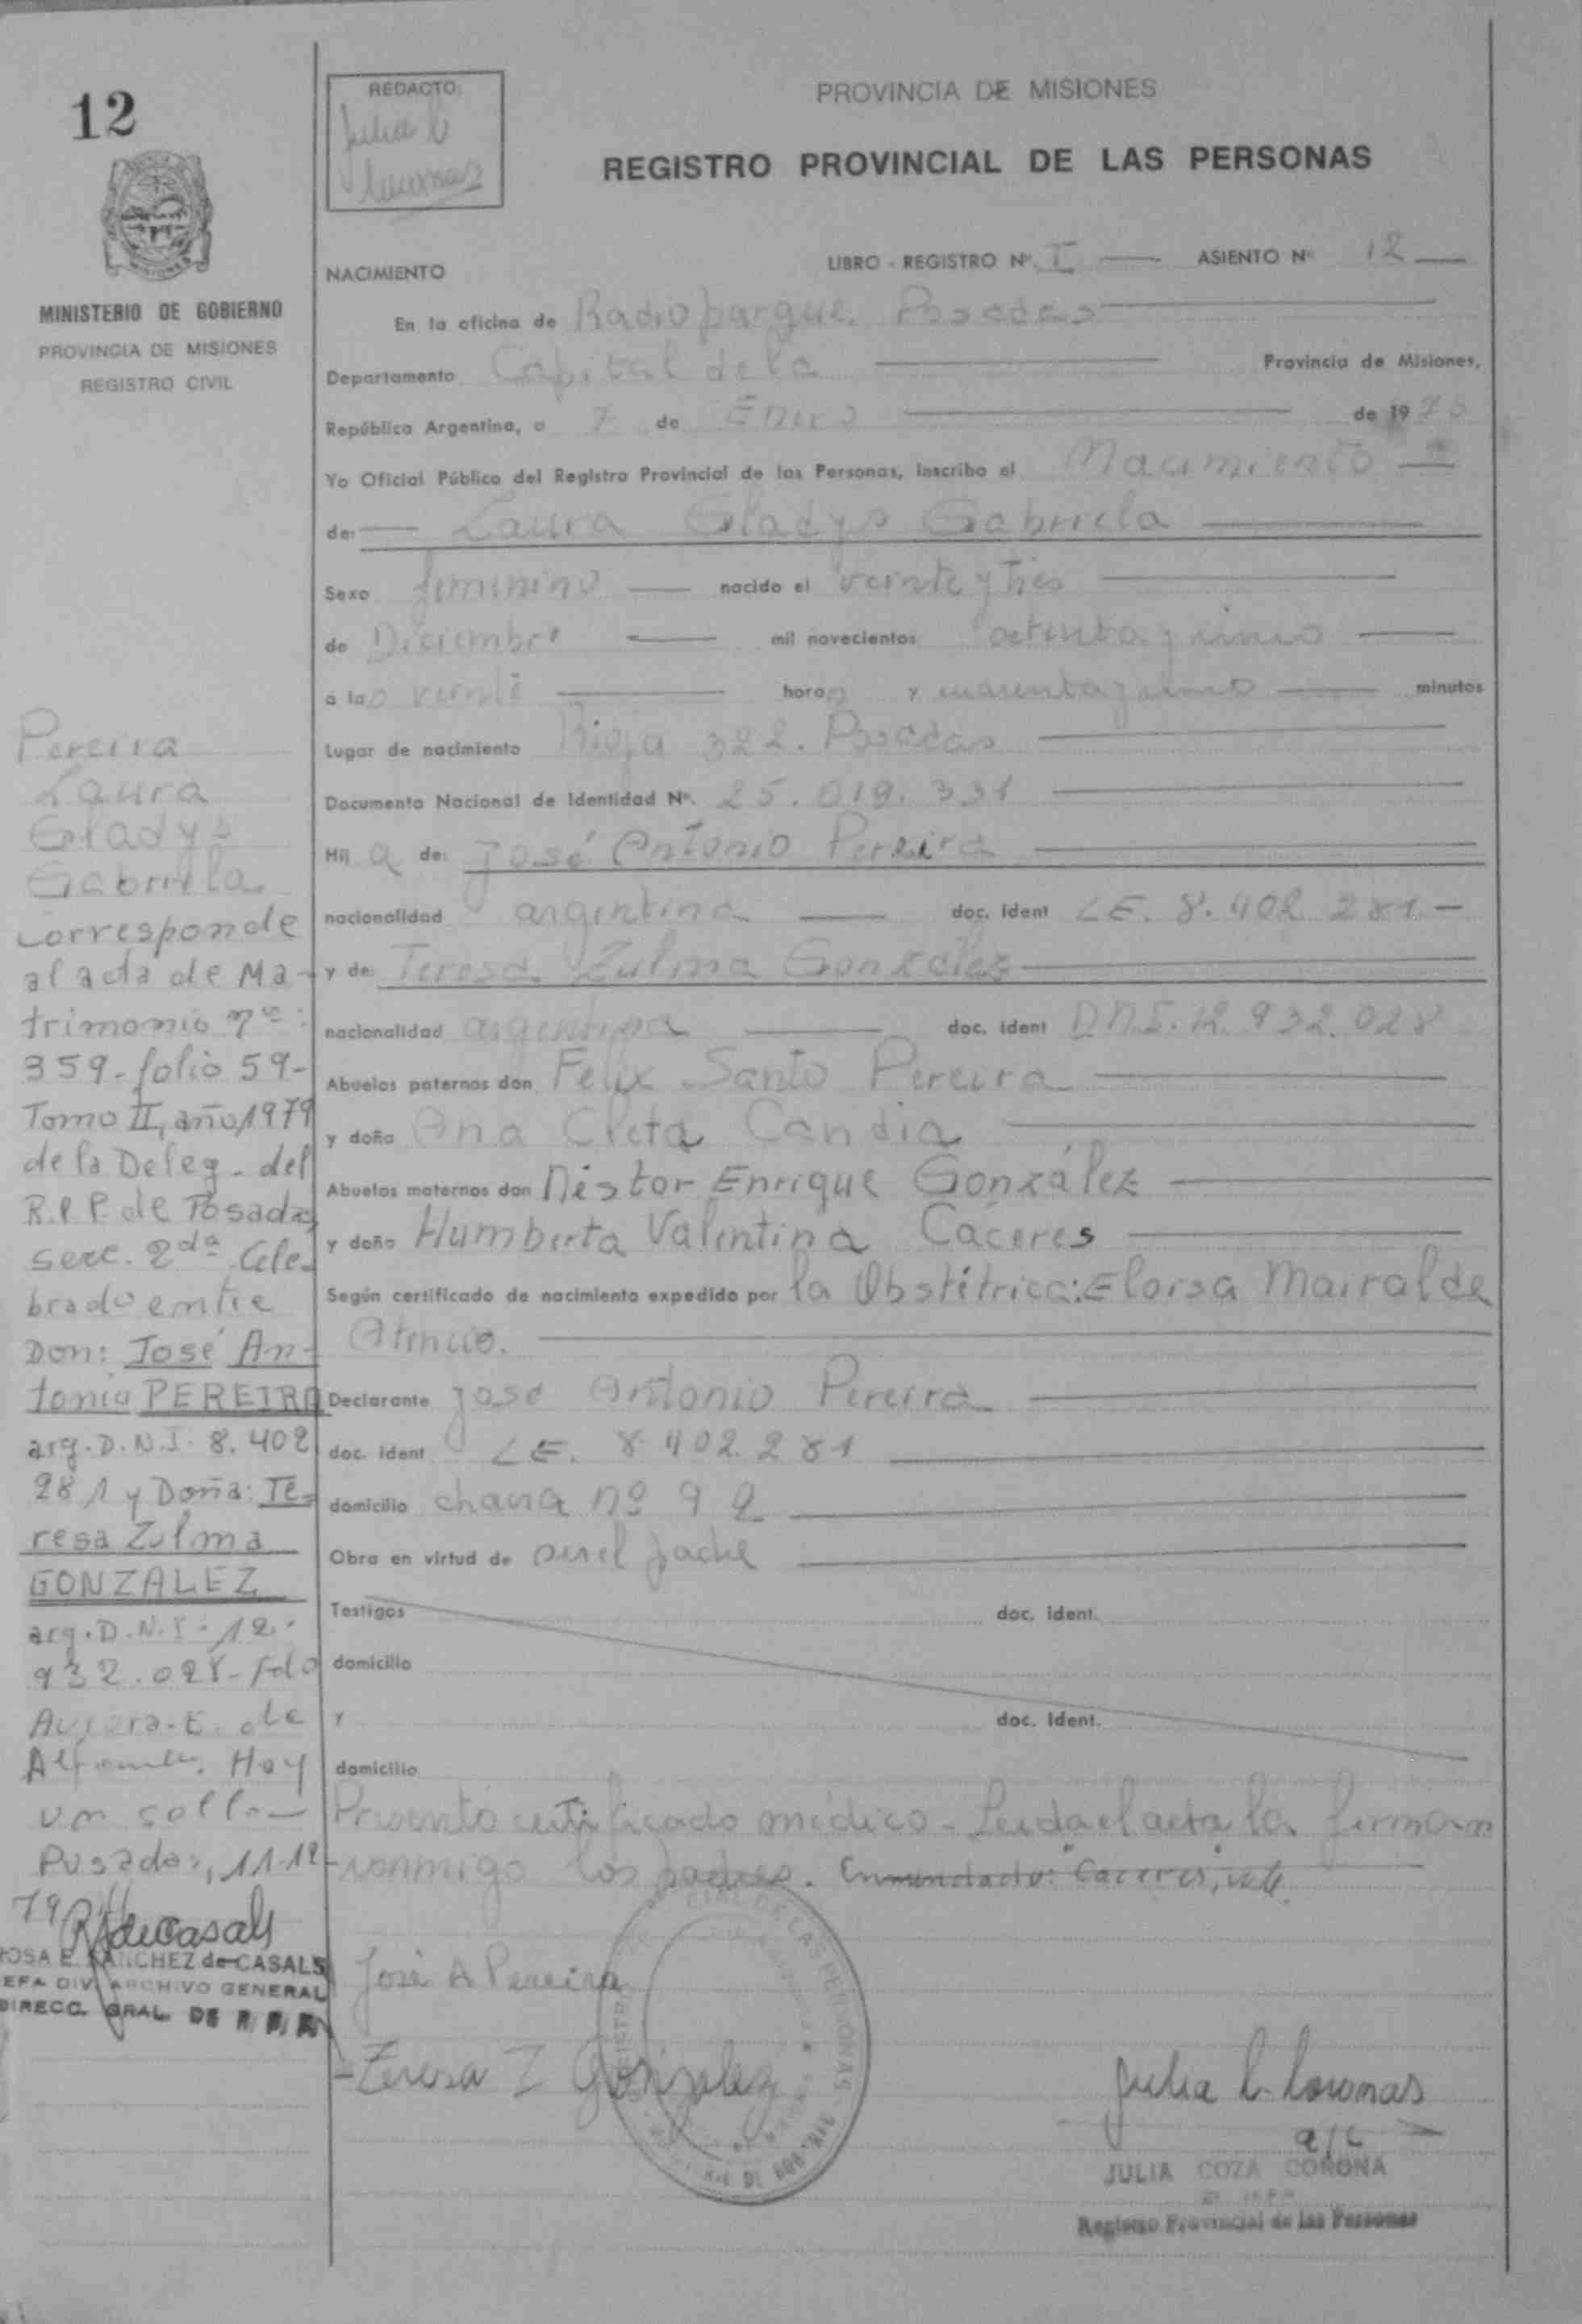 12
REDACTO:
PROVINCIA DE MISIONES
REGISTRO PROVINCIAL DE LAS PERSONAS
MISIONES
MINISTERIO DE GOBIERNO
PROVINCIA DE MISIONES
REGISTRO CIVIL
NACIMIENTO
LIBRO - REGISTRO Nº. I ASIENTO Nº 12
En la oficina de Radioparque. Posadas
Departamento Capital de la Provincia de Misiones,
República Argentina, a 7 de Enero de 1976
Yo Oficial Público del Registro Provincial de las Personas, inscribo el Nacimiento
de: Laura Gladys Gabriela
Sexo femenino nacido el veinte y tres
de Diciembre mil novecientos setenta y cinco
a las veinte horas y cuarenta y cinco minutos
Lugar de nacimiento Rioja 322. Posadas
Documento Nacional de Identidad Nº. 25.019.331
Hij a de: José Antonio Pereira
nacionalidad argentina doc. ident LE. 8.402 281.-
y de: Teresa Zulma González
nacionalidad argentina doc. ident D.N.I. 12.932.028
Abuelos paternos don Felix Santo Pereira
y doña Ana Cleta Candia
Abuelos maternos don Néstor Enrique González
y doña Humberta Valentina Cáceres
Según certificado de nacimiento expedido por la Obstétrica: Eloisa Mairal de
Atencio.
Declarante José Antonio Pereira
doc. ident LE. 8.402.281
domicilio chacra nº 92
obra en virtud de ser el padre
Testigos doc. ident.
domicilio
y doc. ident.
domicilio
Presentó certificado médico - Leída el acta la firman
conmigo los padres. Enmendado: "Caceres", vale
José A Pereira
Teresa Z González
JULIA COZA CORONA
Registro Provincial de las Personas
Pereira
Laura
Gladys
Gabriela
corresponde
al acta de Ma-
trimonio nº:
359-folio 59-
Tomo II, año 1979
de la Deleg. del
R.P.P. de Posadas,
secc. 2da. Cele-
brado entre
Don: José An-
tonio PEREIRA
arg. D.N.I. 8.402
281 y Doña: Te-
resa Zulma
GONZALEZ
arg. D.N.I. 12.
932.028- fdo
de
Hay
un sello-
Posadas, 11-12
79
ROSA E. SANCHEZ de CASALS
JEFA DIV. ARCHIVO GENERAL
DIRECC. GRAL. DE R.P.P.